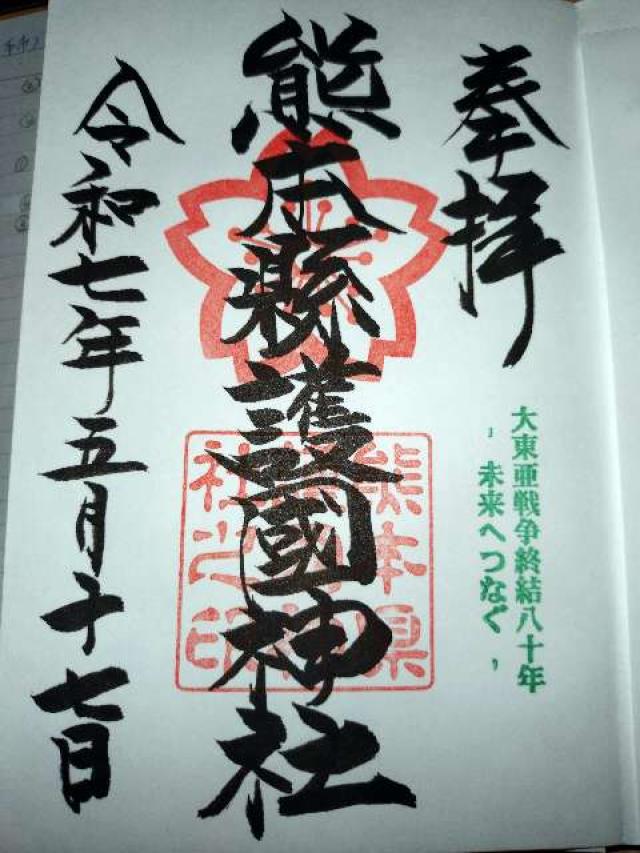 奉拝
大東亜戦争終結八十年
- 未来へつなぐ -
熊本縣護國神社
熊本県
社之印
令和七年五月十七日